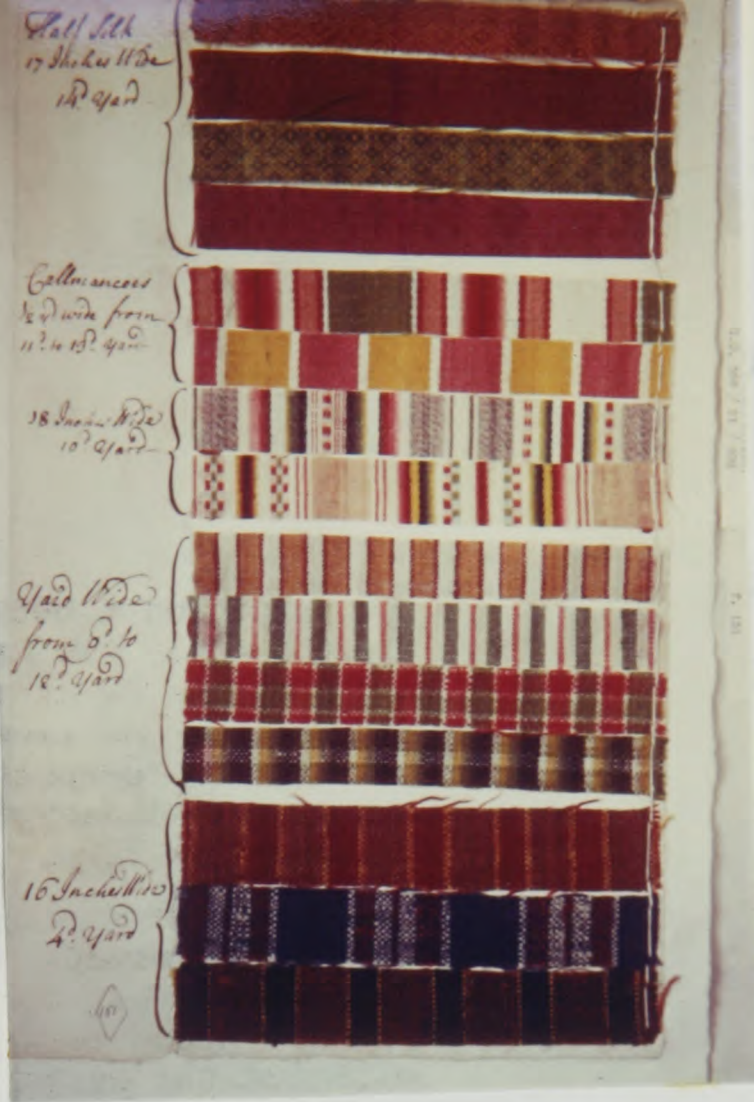 Half Silk
17 Inches Wide
14d. Yard
Callmancoes
½ yd wide from
11d. to 19d. Yard
18 Inches Wide
10d. Yard
Yard Wide
from 9d. to
18d. Yard
16 Inches Wide
4d. Yard